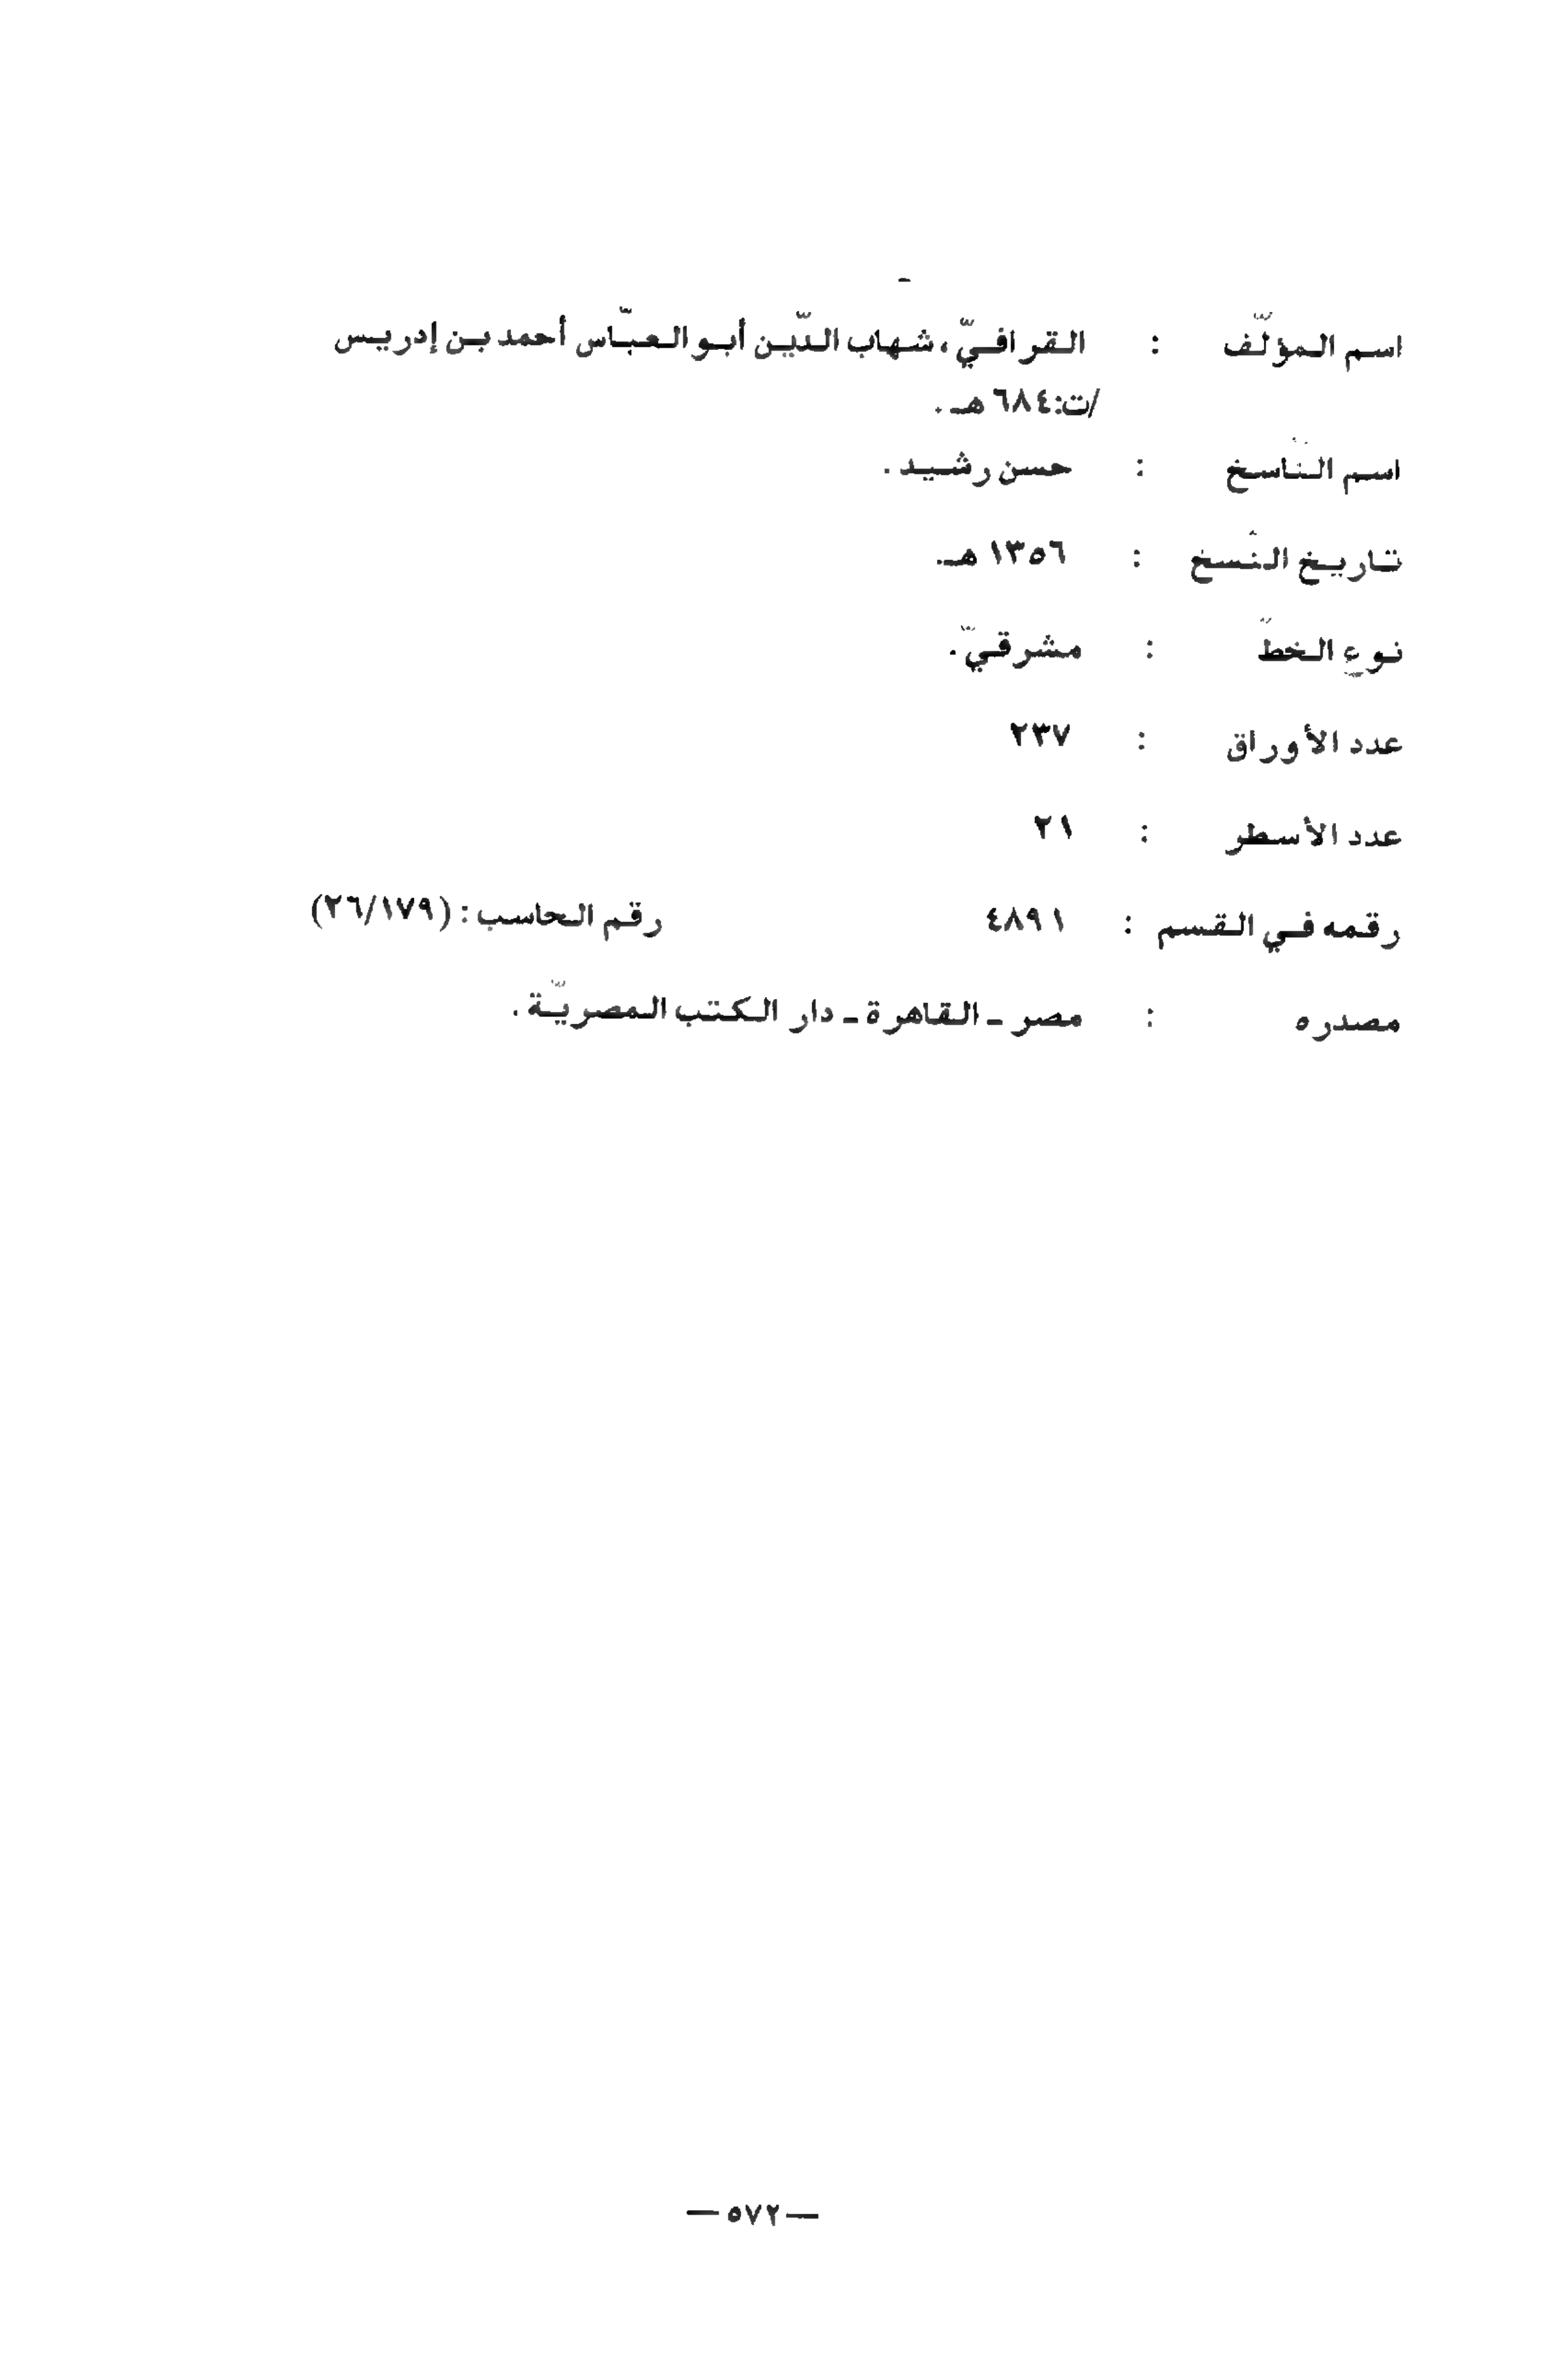 اسم المؤلّف : القرافيّ، شهاب الدّين أبو العبّاس أحمد بن إدريس
/ت:٦٨٤ هـ .
اسم النّاسخ : حسن رشيد .
تاريخ النّسخ : ١٣٥٦ هـ.
نوع الخطّ : مشرقيّ.
عدد الأوراق : ٢٣٧
عدد الأسطر : ٢١
رقمه في القسم : ٤٨٩١ رقم الحاسب : (٢٦/١٧٩)
مصدره : مصر ـ القاهرة ـ دار الكتب المصريّة .
— ٥٧٢ —